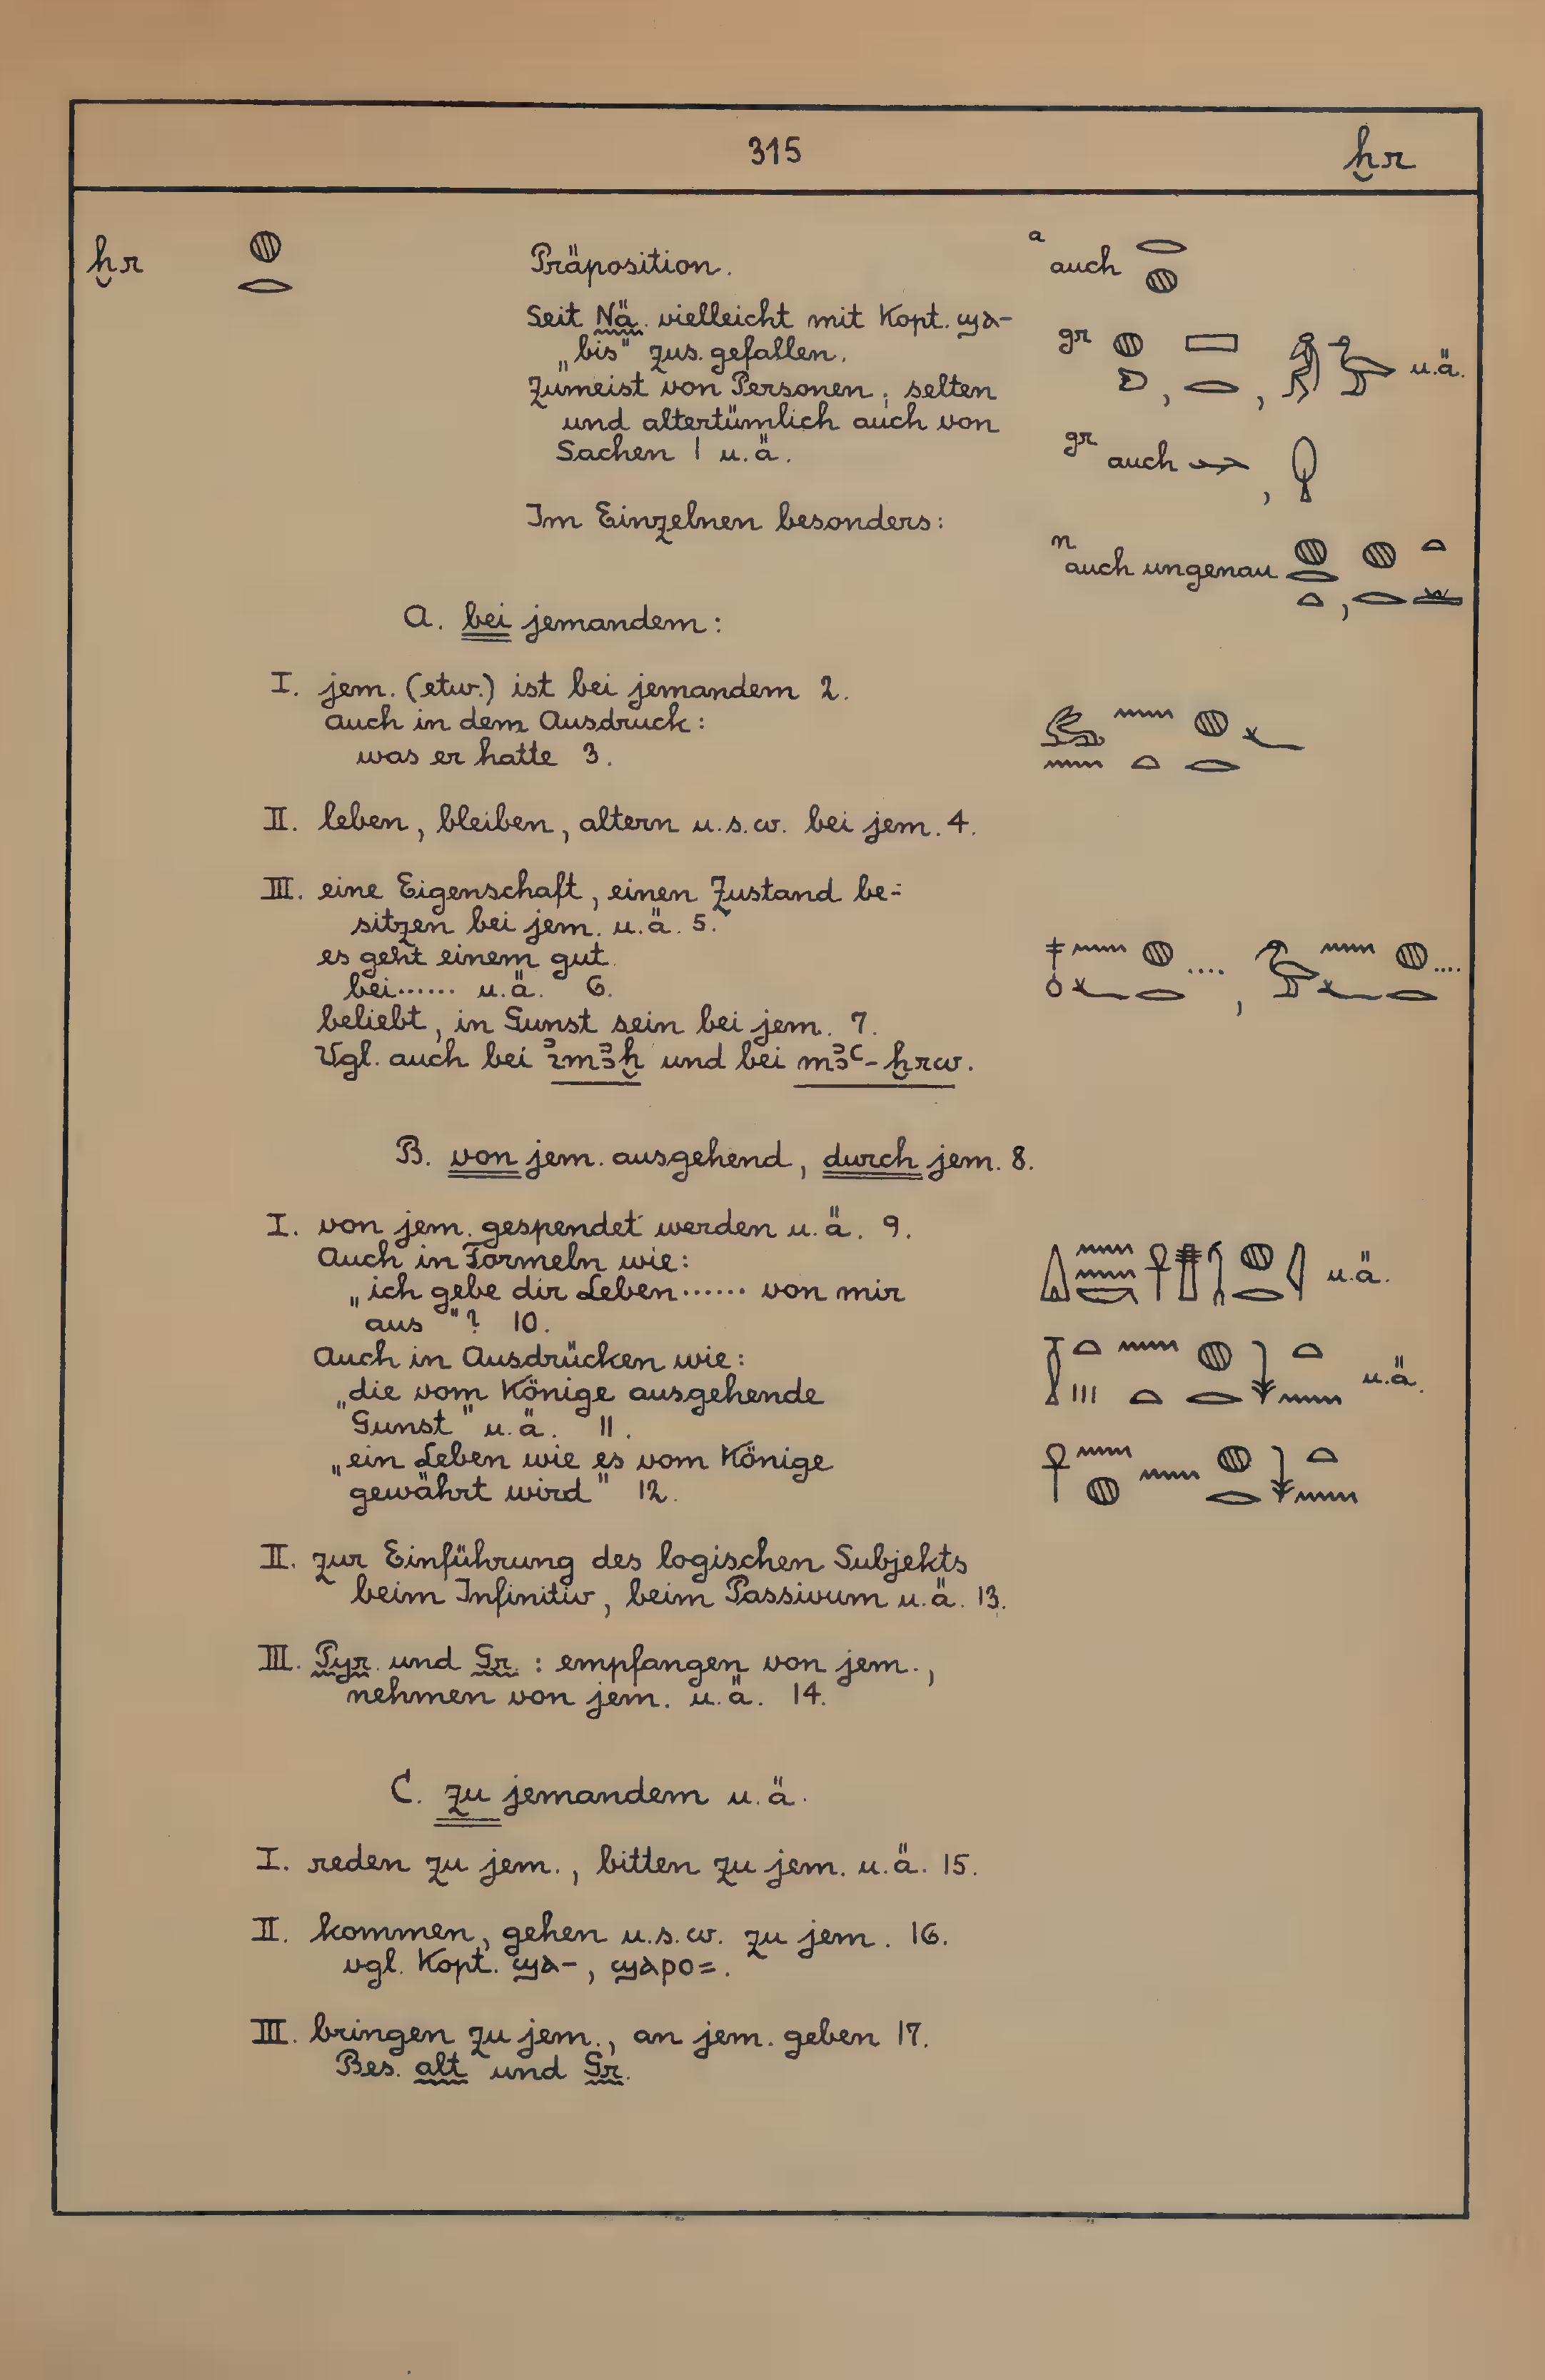 315 ḫr
ḫr 𓐍𓂋 Präposition.
Seit Nä. vielleicht mit Kopt. ϣⲁ-
„bis“ zus. gefallen.
Zumeist von Personen; selten
und altertümlich auch von
Sachen 1 u. ä.
Im Einzelnen besonders:
a auch 𓂋𓐍
gr u. ä.
gr auch
n auch ungenau 𓐍𓂋𓏏,
A. bei jemandem:
I. jem. (etw.) ist bei jemandem 2.
auch in dem Ausdruck:
was er hatte 3. 𓃹𓈖𓈖𓏏𓐍𓂋𓆑
II. leben, bleiben, altern u. s. w. bei jem. 4.
III. eine Eigenschaft, einen Zustand be-
sitzen bei jem. u. ä. 5.
es geht einem gut
bei...... u. ä. 6. 𓄤𓈖𓆑𓐍𓂋...., 𓅜𓈖𓆑𓐍𓂋....
beliebt, in Gunst sein bei jem. 7.
Vgl. auch bei ꞽmꜣḫ und bei mꜣꜥ-ḫrw.
B. von jem. ausgehend, durch jem. 8.
I. von jem. gespendet werden u. ä. 9.
Auch in Formeln wie:
„ich gebe dir Leben...... von mir
aus“? 10. u. ä.
Auch in Ausdrücken wie:
„die vom Könige ausgehende
Gunst“ u. ä. 11. 𓎿𓏏𓏥𓈖𓏏𓐍𓂋𓇓𓏏𓈖 u. ä.
„ein Leben wie es vom Könige
gewährt wird“ 12. 𓋹𓈖𓐍𓈖𓐍𓂋𓇓𓏏𓈖
II. zur Einführung des logischen Subjekts
beim Infinitiv, beim Passivum u. ä. 13.
III. Pyr. und Gr.: empfangen von jem.,
nehmen von jem. u. ä. 14.
C. zu jemandem u. ä.
I. reden zu jem., bitten zu jem. u. ä. 15.
II. kommen, gehen u. s. w. zu jem. 16.
vgl. Kopt. ϣⲁ-, ϣⲁⲣⲟ=.
III. bringen zu jem., an jem. geben 17.
Bes. alt und Gr.